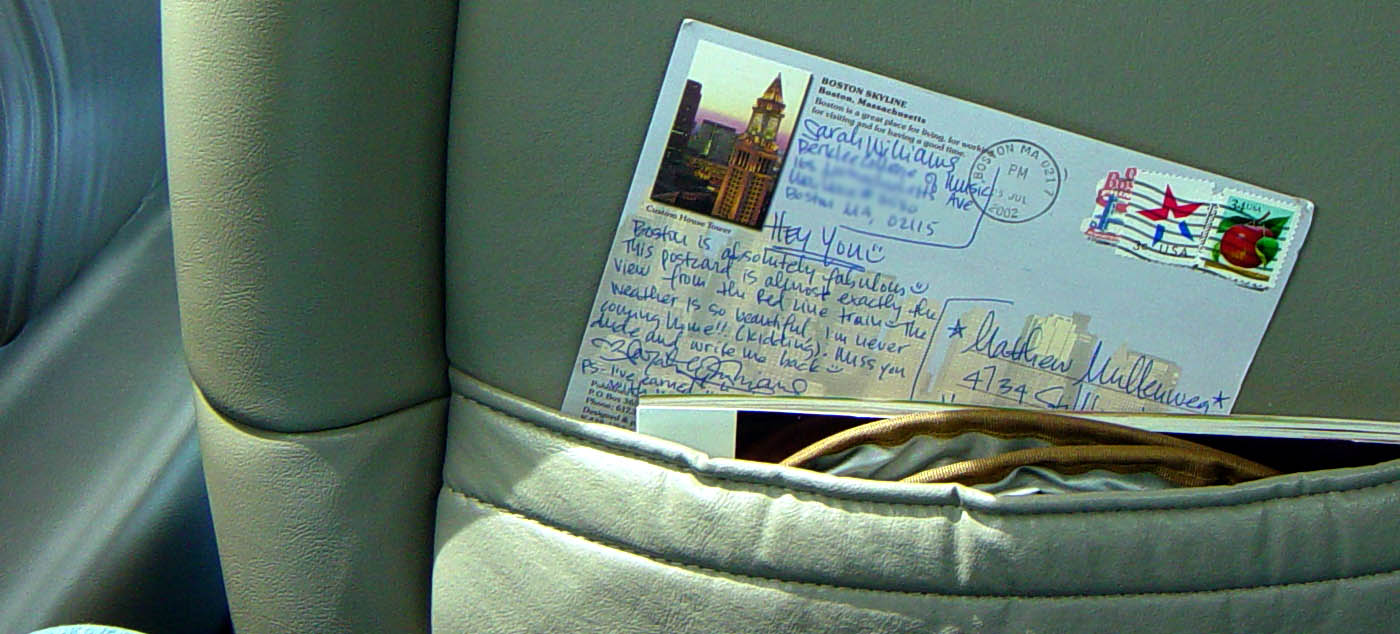 BOSTON SKYLINE
Boston, Massachusetts
Boston is a great place for living, for working
for visiting and for having a good time.
Sarah Williams
Berklee of Music
Ave
Boston MA, 02115
BOSTON MA 021 7
PM
JUL
2002
34 USA
USA
Custom House Tower
HEY YOU
Boston is absolutely fabulous
This postcard is almost exactly the
view from the Red Line train. The
weather is so beautiful, I'm never
coming home!! (kidding). Miss you
dude and write me back
PS- I've learned
P.O. Box
Phone: 617
Designed &
* Matthew Mullenweg *
4734